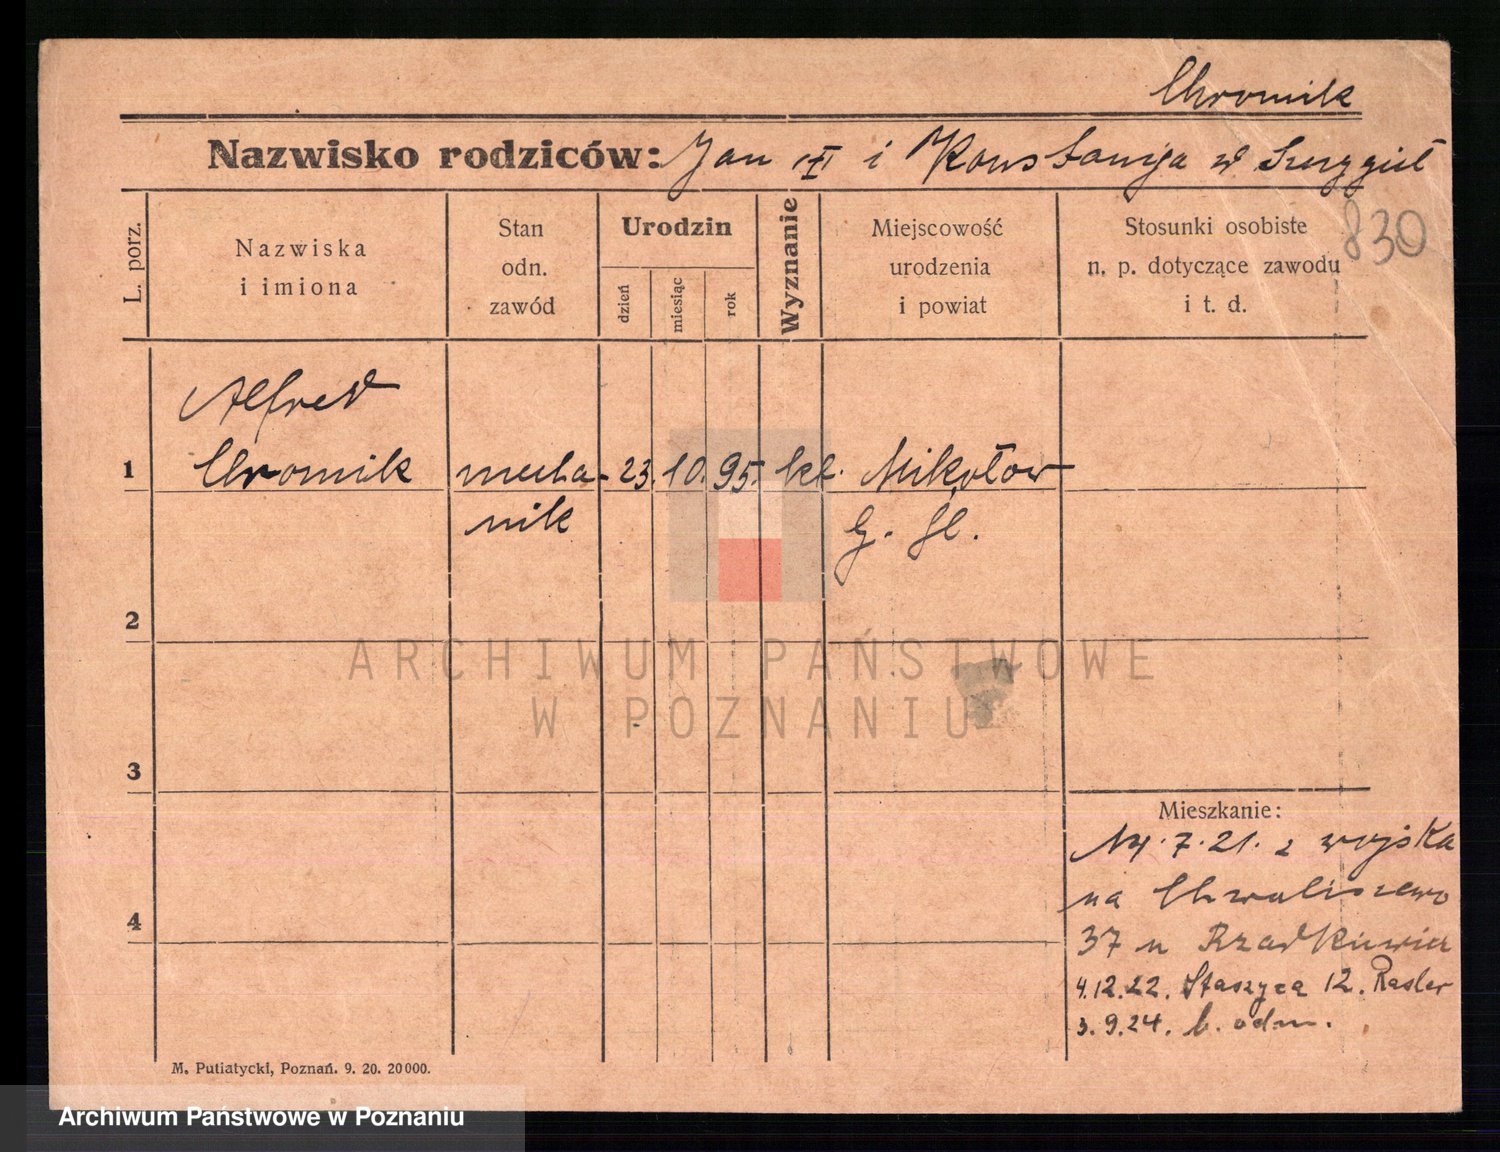 Chromik
Nazwisko rodziców: Jan i Konstancja
830
L. porz.
Nazwiska
i imiona
Stan
odn.
zawód
Urodzin
dzień
miesiąc
rok
Wyznanie
Miejscowość
urodzenia
i powiat
Stosunki osobiste
n. p. dotyczące zawodu
i t. d.
Alfred
1 Chromik mecha- 23. 10. 95. kt. Mikołow
nik G. Śl.
2
3
4
Mieszkanie:
14.7.21. z wojska
na Chwaliszewo
37 u Rzadkiewicz
4.12.22. Staszyca 12. Rasler
3.9.24. b. odm.
M. Putiatycki, Poznań. 9. 20. 20000.
ARCHIWUM PAŃSTWOWE
W POZNANIU
Archiwum Państwowe w Poznaniu